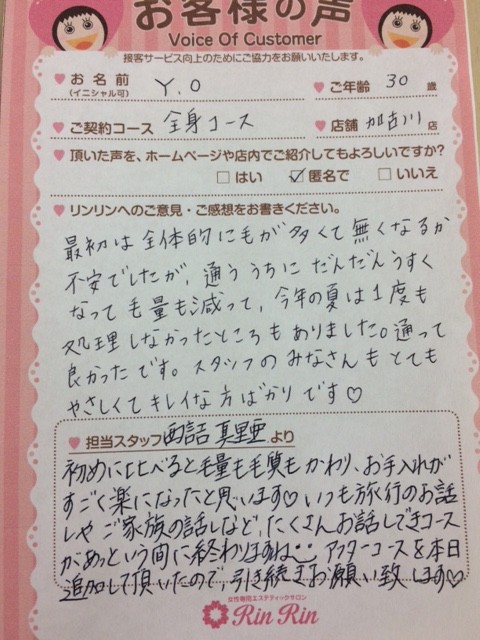 お客様の声
Voice Of Customer
接客サービス向上のためにご協力をお願いいたします。
お名前 Y.O ご年齢 30 歳
(イニシャル可)
ご契約コース 全身コース 店舗 加古川 店
頂いた声を、ホームページや店内でご紹介してもよろしいですか?
はい 匿名で いいえ
リンリンへのご意見・ご感想をお書きください。
最初は全体的に毛が多くて無くなるか
不安でしたが、通ううちにだんだんうすく
なって毛量も減って、今年の夏は1度も
処理しなかったところもありました。通って
良かったです。スタッフのみなさんもとても
やさしくてキレイな方ばかりです♡
担当スタッフ 真里亜 より
初めに比べると毛量も毛質もかわり、お手入れが
すごく楽になったと思います♡いつも旅行のお話
しや ご家族の話しなど、たくさんお話しできコース
があっという間に終わりますね アフターコースを本日
追加して頂いたので、引き続きお願い致します♡
女性専用エステティックサロン
Rin Rin